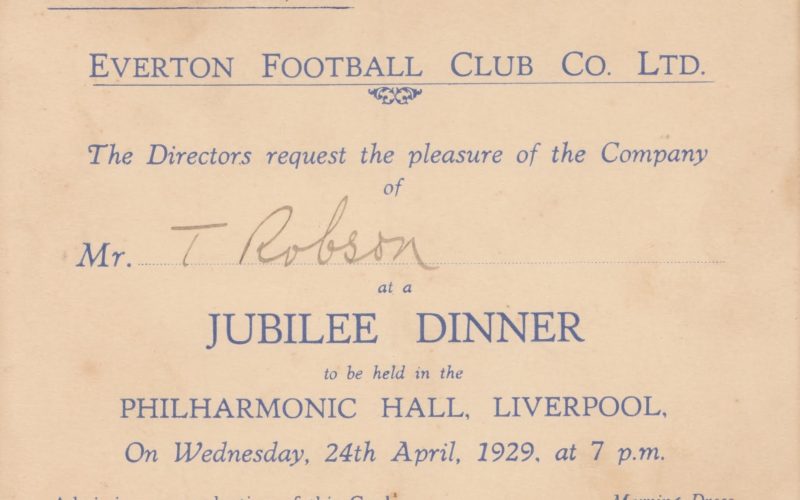 EVERTON FOOTBALL CLUB CO. LTD.
The Directors request the pleasure of the Company
of
Mr. T Robson
at a
JUBILEE DINNER
to be held in the
PHILHARMONIC HALL, LIVERPOOL,
On Wednesday, 24th April, 1929, at 7 p.m.